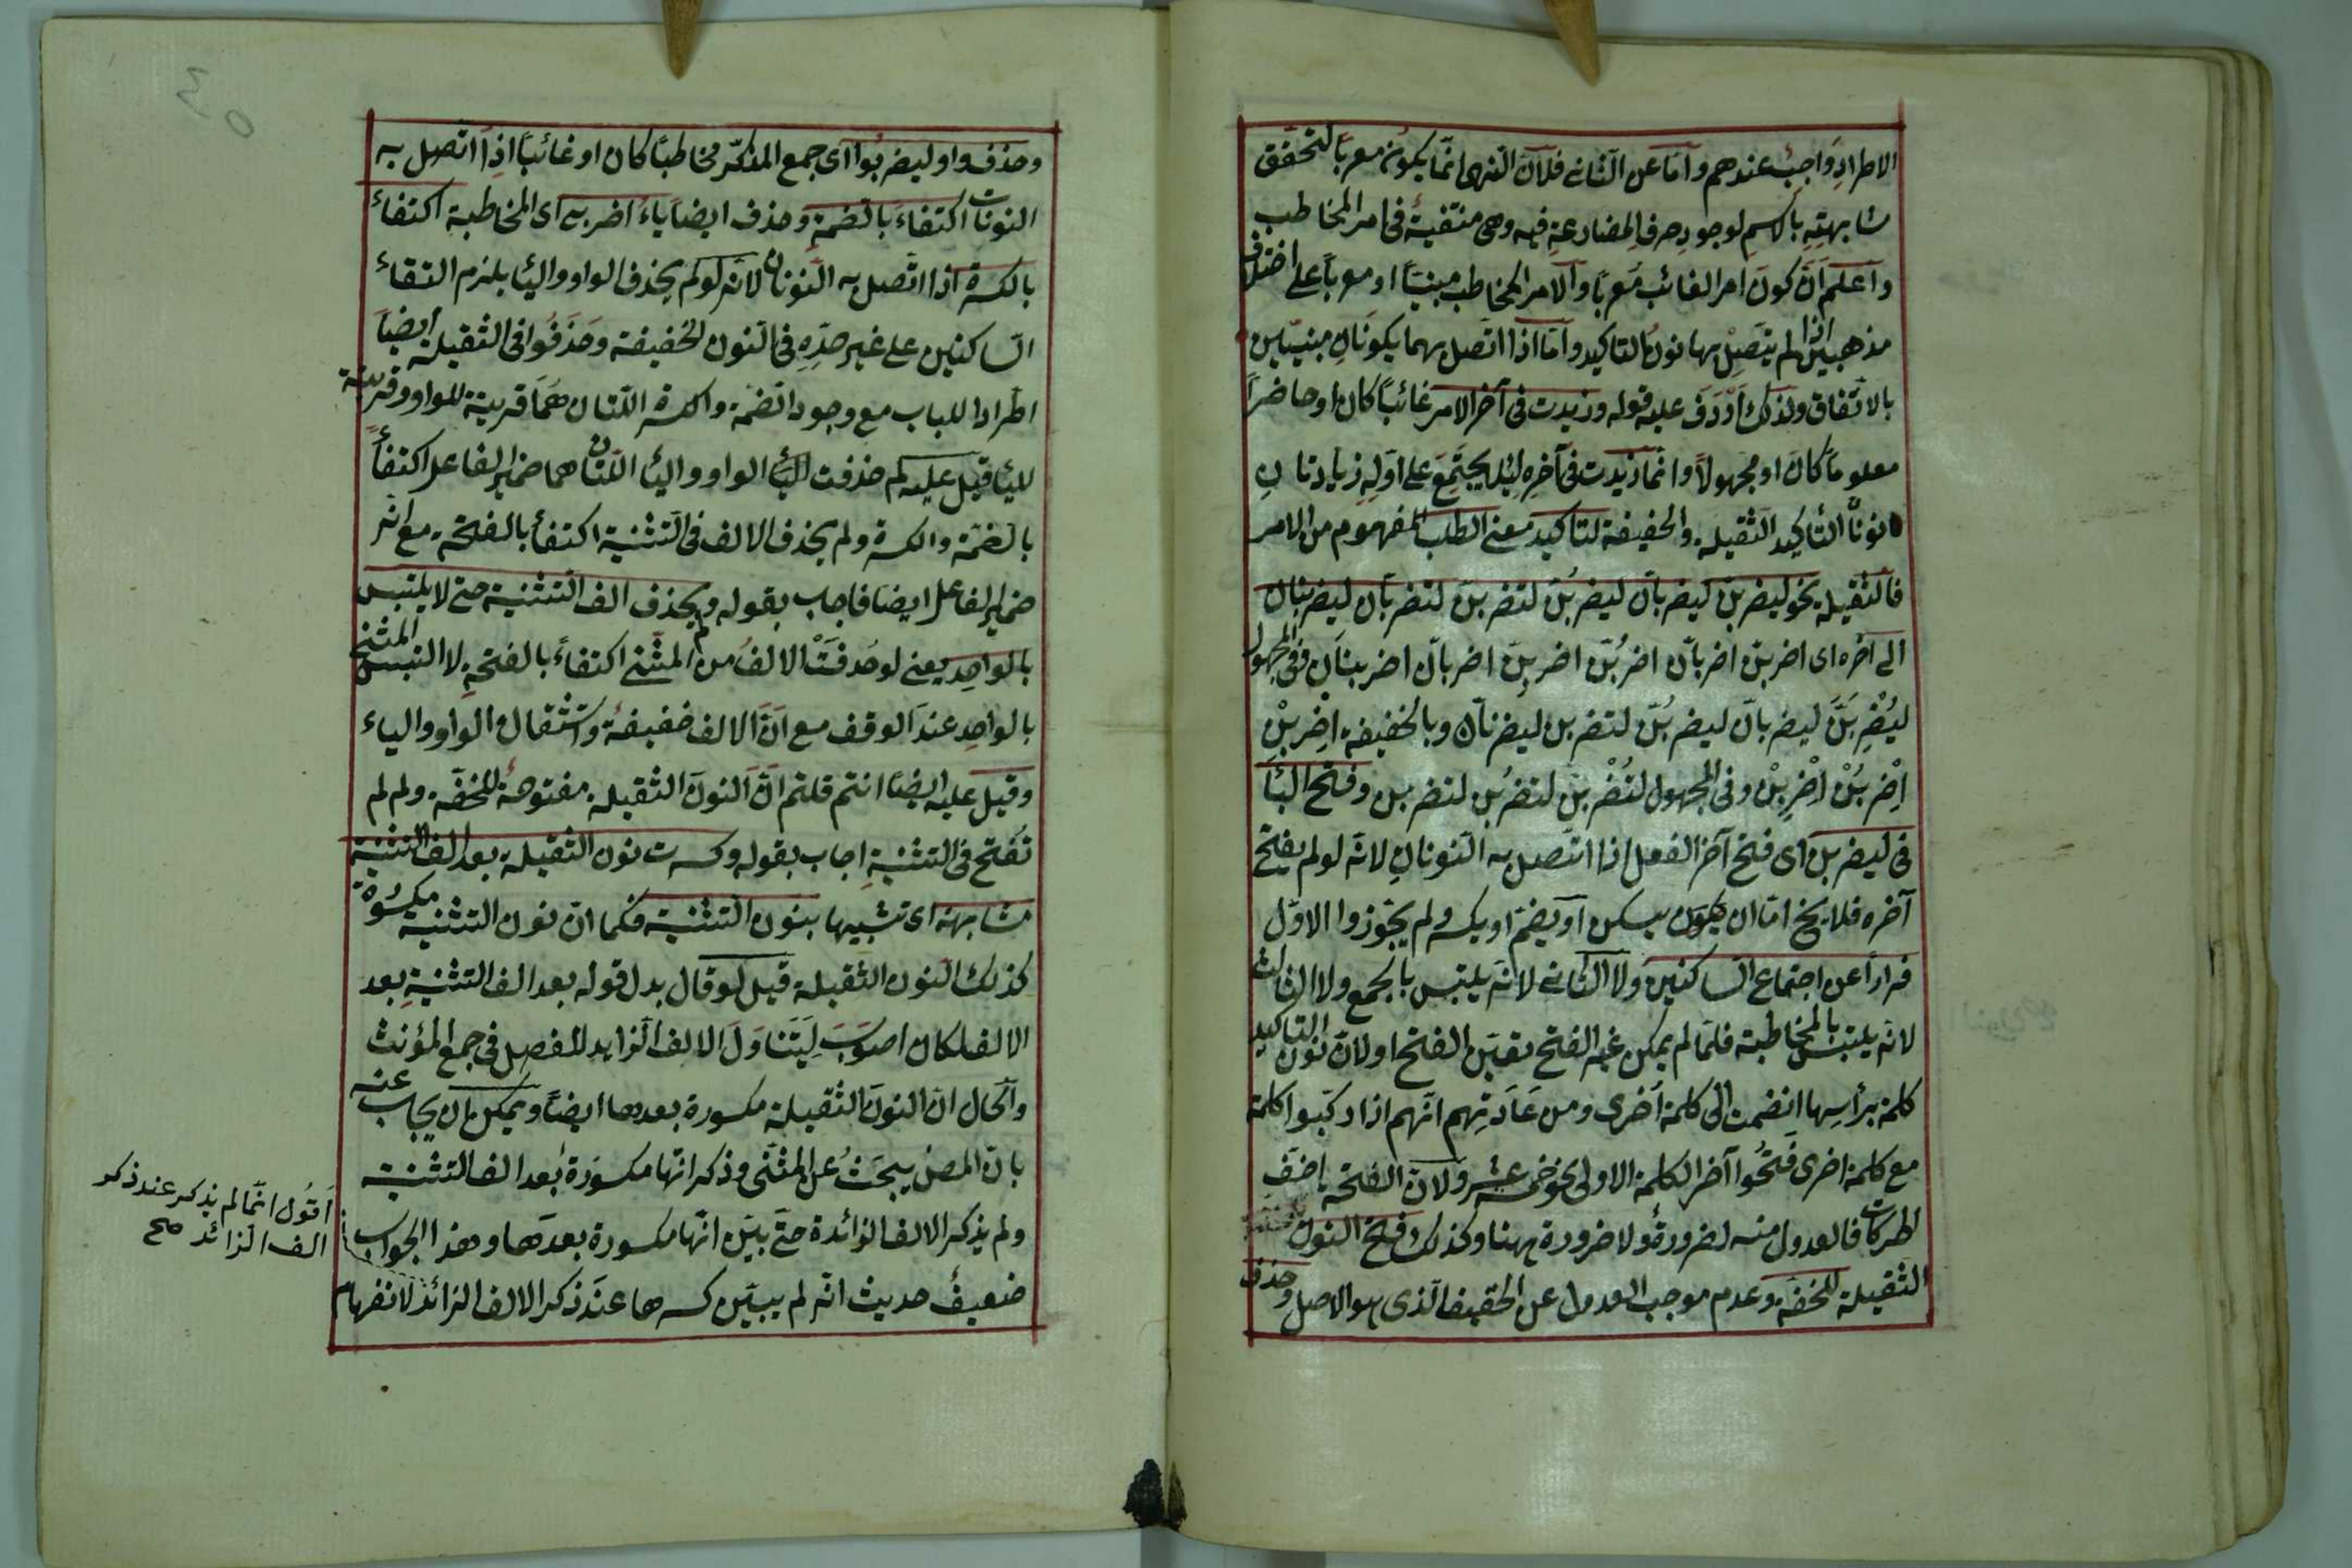 الاطرادِ واجبٌ عندهم وامّا عن الثانى فلانّ النهى انّما يكون معربًا لتحقّق
مشابهتِهِ بالاسمِ لوجودِ حرفِ المضارعةِ فيه وهى منتفيةٌ فى امر المخاطب
وآعلم انّ كونَ امر الغائب مُعربًا والامر المخاطب مبنيًا او معربًا على اختلاف
مذهبين اذا لم يتّصِلْ بهما نونُ التاكيد وامّا اذا اتّصل بهما يكونانِ مبنيّين
بالاتّفاق ولذلك اَرْدَفَ عليه قوله وزيدت فى آخر الامر غائبًا كان او حاضرًا
معلومًا كان او مجهولًا وانّما زيدت فى آخرِه لئلا يجتمِعَ على اوّلِهِ زيادتانِ
نونا التأكيد الثقيلة والخفيفة لتاكيد معنى الطلب المفهوم من الامر
فالثقيلة نحو ليضربنّ ليضربانّ ليضربُنّ لتضربنّ لتضربانّ ليضربنانّ
الى آخره اى اضربنّ اضربانّ اضربُنّ اضربِنّ اضربانّ اضربنانّ وفى المجهول
ليُضْرَبَنَّ ليضربانّ ليضربُنّ لتضربن ليضربنانّ وبالخفيفة اِضْرِبَنْ
اِضْرِبُنْ اِضْرِبِنْ وفى المجهول لتُضْرَبن لتضربُن لتضربن وفتح البآء
فى ليضربنّ اى فتح آخر الفعل اذا اتّصل به النّونانِ لانّه لو لم يفتح
آخره فلا يخ امّا ان يكون يسكن او يضمّ او يكسر ولم يجوّزوا الاوّل
فرارًا عن اجتماع الساكنين ولا الثانى لانّه يلتبس بالجمع ولا الثالث
لانّه يلتبس بالمخاطبة فلمّا لم يمكن غير الفتح تعيّن الفتح او لانّ نون التاكيد
كلمة برأسها انضمت الى كلمة اُخرى ومن عَادَتِهم انّهم اذا ركّبوا كلمة
مع كلمة اخرى فتَحُوا آخر الكلمة الاولى نحو خمسة عشر ولانّ الفتحة اخفّ
الحركات فالعدول منه لضرورةٍ ولا ضرورة ههنا وكذلك فتح النون
الثقيلة للخفّة وعدم موجب العدول عن الخفيف الّذى هو الاصل وحذف
وحذف واو ليضربُوا اى جمع المذكّر مخاطبًا كان او غائبًا اذا اتّصل به
النونات اكتفاءً بالضمّةِ وحذف ايضًا ياء اضربى اى المخاطبة اكتفاءً
بالكسرة اذا اتّصل به النّونان لانّه لو لم يحذف الواو واليا يلزم التقاء
السّاكنين على غير حدّهِ فى النّون الخفيفة وحَذَفُوا فى الثقيلة ايضًا
اطّرادا للباب مع وجود الضمّة والكسرة اللّتان هُمَا قرينة للواو وقرينة
لليا قيل عليه لم حذفت الواو واليا اللّتان هما ضمير الفاعل اكتفاءً
بالضمّة والكسرة ولم يحذف الالف فى التّثنية اكتفأ بالفتحة مع انّه
ضمير الفاعل ايضا فاجاب بقوله ولم يحذف الف التّثنية حتى لا يلتبس
بالواحِد يعنى لو حُذفَتْ الالفُ من المثنّى اكتفاءً بالفتحةِ لالتبس المثنى
بالواحِد عند الوقف مع انّ الالف خفيفةٌ واستثقال الواو والياء
وقيل عليه ايضًا انتم قلتم انّ النونَ الثقيلة مفتوحةٌ للخفّة ولِم لم
تُفتح فى التثنيةِ اجاب بقوله وكسرت نون الثقيلة بعد الف التثنية
مشابهة اى تشبيها بنون التّثنية فكما انّ نون التثنية مكسورة
كذلك النون الثقيلة قيل لو قال بدل قوله بعد الف التثنيةِ بعد
الالف لكان اصوَبَ لِيَتَناوَلَ الالف الزايد للفصل فى جمع المؤنث
والحال انّ النونَ الثّقيلة مكسورة بعدها ايضًا ويمكن بان يجاب عنه
بانّ المصنّ يبحَثُ عن المثنّى وذكر انّها مكسورَة بعد الف التثنية
ولم يذكر الالف الزائدة حتّى بيّن انّها مكسورة بعدَها وهذا الجواب
ضعيفٌ حديث انّه لم يبيّن كسرها عندَ ذكر الالف الزائد لانفهام
اَقول انّما لم يذكر عند ذكر
الف الزائد صح